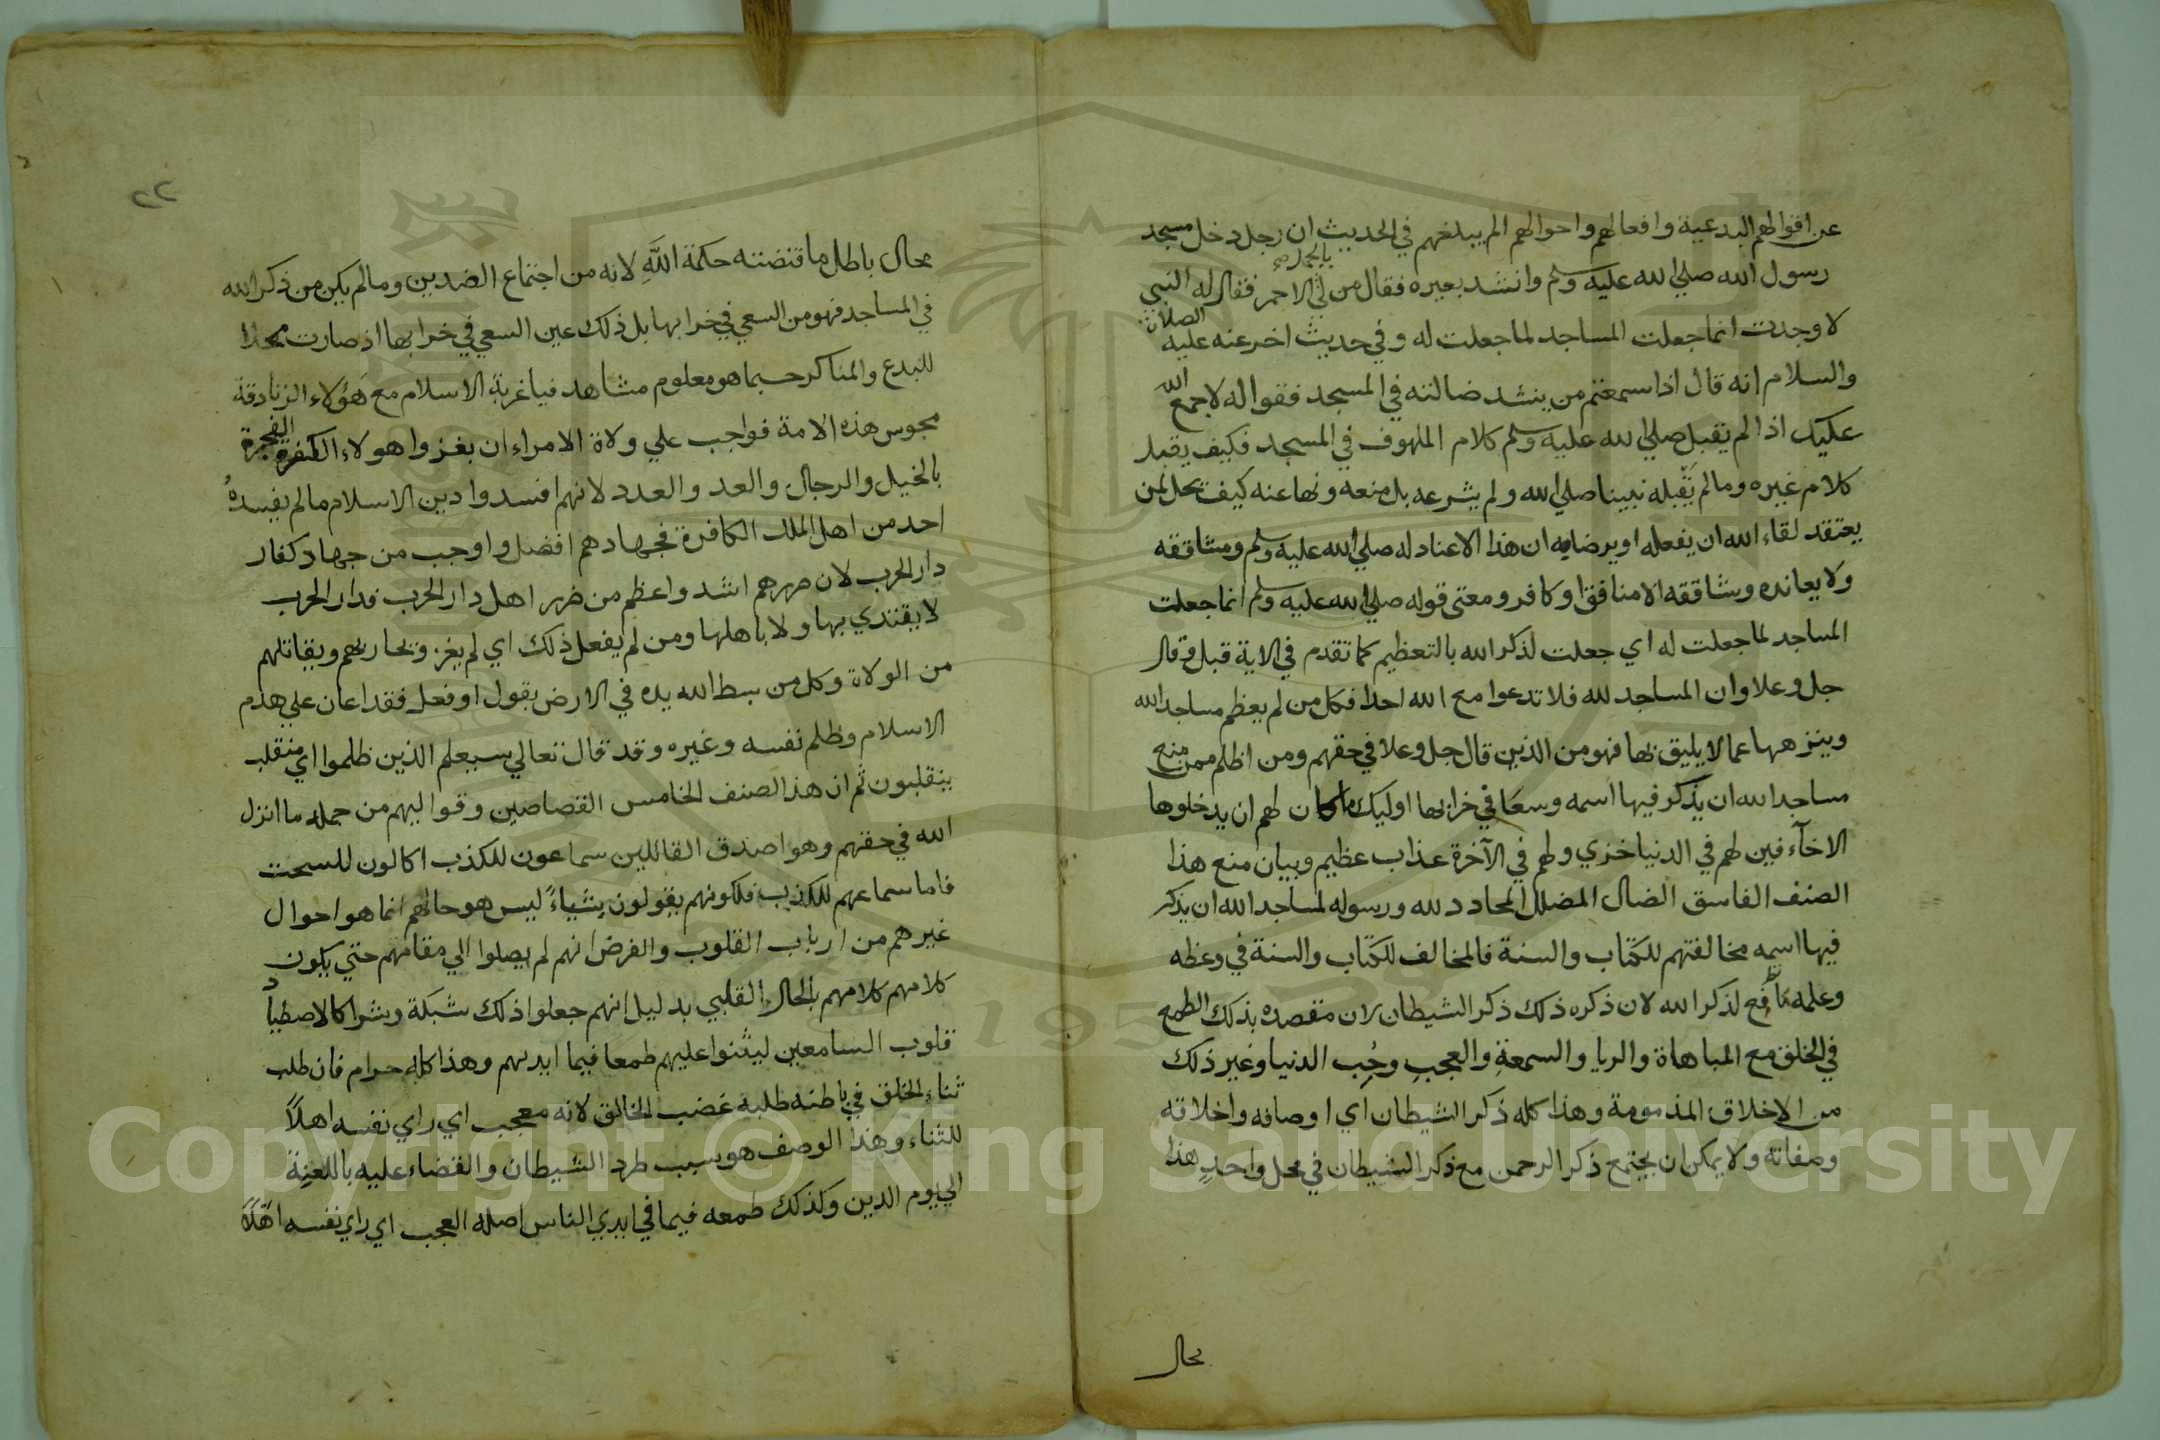 عن اقوالهم البدعية وافعالهم واحوالهم الم يبلغهم في الحديث ان رجل دخل مسجد
رسول الله صلي الله عليه وسلم وانشد بعيره فقال من لي الاحمر فقال له النبي
لا وجدت انما جعلت المساجد لما جعلت له وفي حديث اخر عنه عليه الصلاة
والسلام انه قال اذا سمعتم من ينشد ضالته في المسجد فقوا له لا جمع الله
عليك اذا لم يقبل صلي الله عليه وسلم كلام الملهوف في المسجد فكيف يقبل
كلام غيره وما لم يقبله نبينا صلي الله ولم يشرعه بل منعه ونها عنه كيف يحل لمن
يعتقد لقاء الله ان يفعله او يرضا به ان هذا الا عناد له صلي الله عليه وسلم ومشاققه
ولا يعانده وشاققه الا منافق او كافر ومعني قوله صلي الله عليه وسلم انما جعلت
المساجد لما جعلت له اي جعلت لذكر الله بالتعظيم كما تقدم في الاية قبل قال
جل وعلا وان المساجد لله فلا تدعوا مع الله احدا فكل من لم يعظم مساجد الله
وينزهها عما لا يليق بها فهو من الذين قال جل وعلا في حقهم ومن اظلم ممن منع
مساجد الله ان يذكر فيها اسمه وسعا في خرابها اوليك ما كان لهم ان يدخلوها
الا خآء فين لهم في الدنيا خزي ولهم في الآخرة عذاب عظيم وبيان منع هذا
الصنف الفاسق الضال المضلل المحادد لله ورسوله لمساجد الله ان يذكر
فيها اسمه مخالفتهم للكتاب والسنة فالمخالف للكتاب والسنة في وعظه
وعلمه لذكر الله لان ذكره ذلك ذكر الشيطان لان مقصده بذلك الطمع
في الخلق مع المباهاة والريا والسمعة والعجب وحب الدنيا وغير ذلك
من الاخلاق المذمومة وهذا كله ذكر الشيطان اي اوصافه واخلاقه
وصفاته ولا يمكن ان يجتمع ذكر الرحمن مع ذكر الشيطان في محل واحد هذا
محال
٢٢
محال باطل ما قتضته حكمة الله لانه من اجتماع الضدين وما لم يكن من ذكر الله
في المساجد فهو من السعي في خرابها بل ذلك عين السعي في خرابها اذ صارت محلا
للبدع والمناكر حسبما هو معلوم مشاهد فيا غربة الاسلام مع هؤلاء الزنادقة
مجوس هذه الامة فواجب علي ولاة الامراء ان يغزوا هولاء الكفرة الفجرة
بالخيل والرجال والعد والعدد لانهم افسدوا دين الاسلام ما لم يفسده
احد من اهل الملل الكافرة فجهادهم افضل واوجب من جهاد كفار
دار الحرب لان ضررهم اشد واعظم من ضرر اهل دار الحرب فدار الحرب
لا يقتدي بها ولا باهلها ومن لم يفعل ذلك اي لم يغز ويحاربهم ويقاتلهم
من الولاة وكل من بسط الله يده في الارض بقول او فعل فقد اعان علي هدم
الاسلام وظلم نفسه وغيره وقد قال تعالي سيعلم الذين ظلموا اي منقلب
ينقلبون ثم ان هذا الصنف الخامس القصاصين وقوا ليهم من جملة ما انزل
الله في حقهم وهو اصدق القائلين سماعون للكذب اكالون للسحت
فاما سماعهم للكذب فلكونهم يقولون بشياءً ليس هو حالهم انما هو احوال
غيرهم من ارباب القلوب والفرض انهم لم يصلوا الي مقامهم حتي يكون
كلامهم كلامهم بالحال القلبي بدليل انهم جعلوا ذلك شبكة وشراكا لاصطياد
قلوب السامعين ليثنوا عليهم طمعا فيما ايديهم وهذا كله حرام فان طلب
ثناء الخلق في باطنه طلبه غضب الخالق لانه معجب اي راي نفسه اهلاً
للثناء وهذا الوصف هو سبب طرد الشيطان والقضاء عليه باللعنة
الي يوم الدين وكذلك طمعه فيما في ايدي الناس اصله العجب اي راي نفسه اهلاً
Copyright © King Saud University